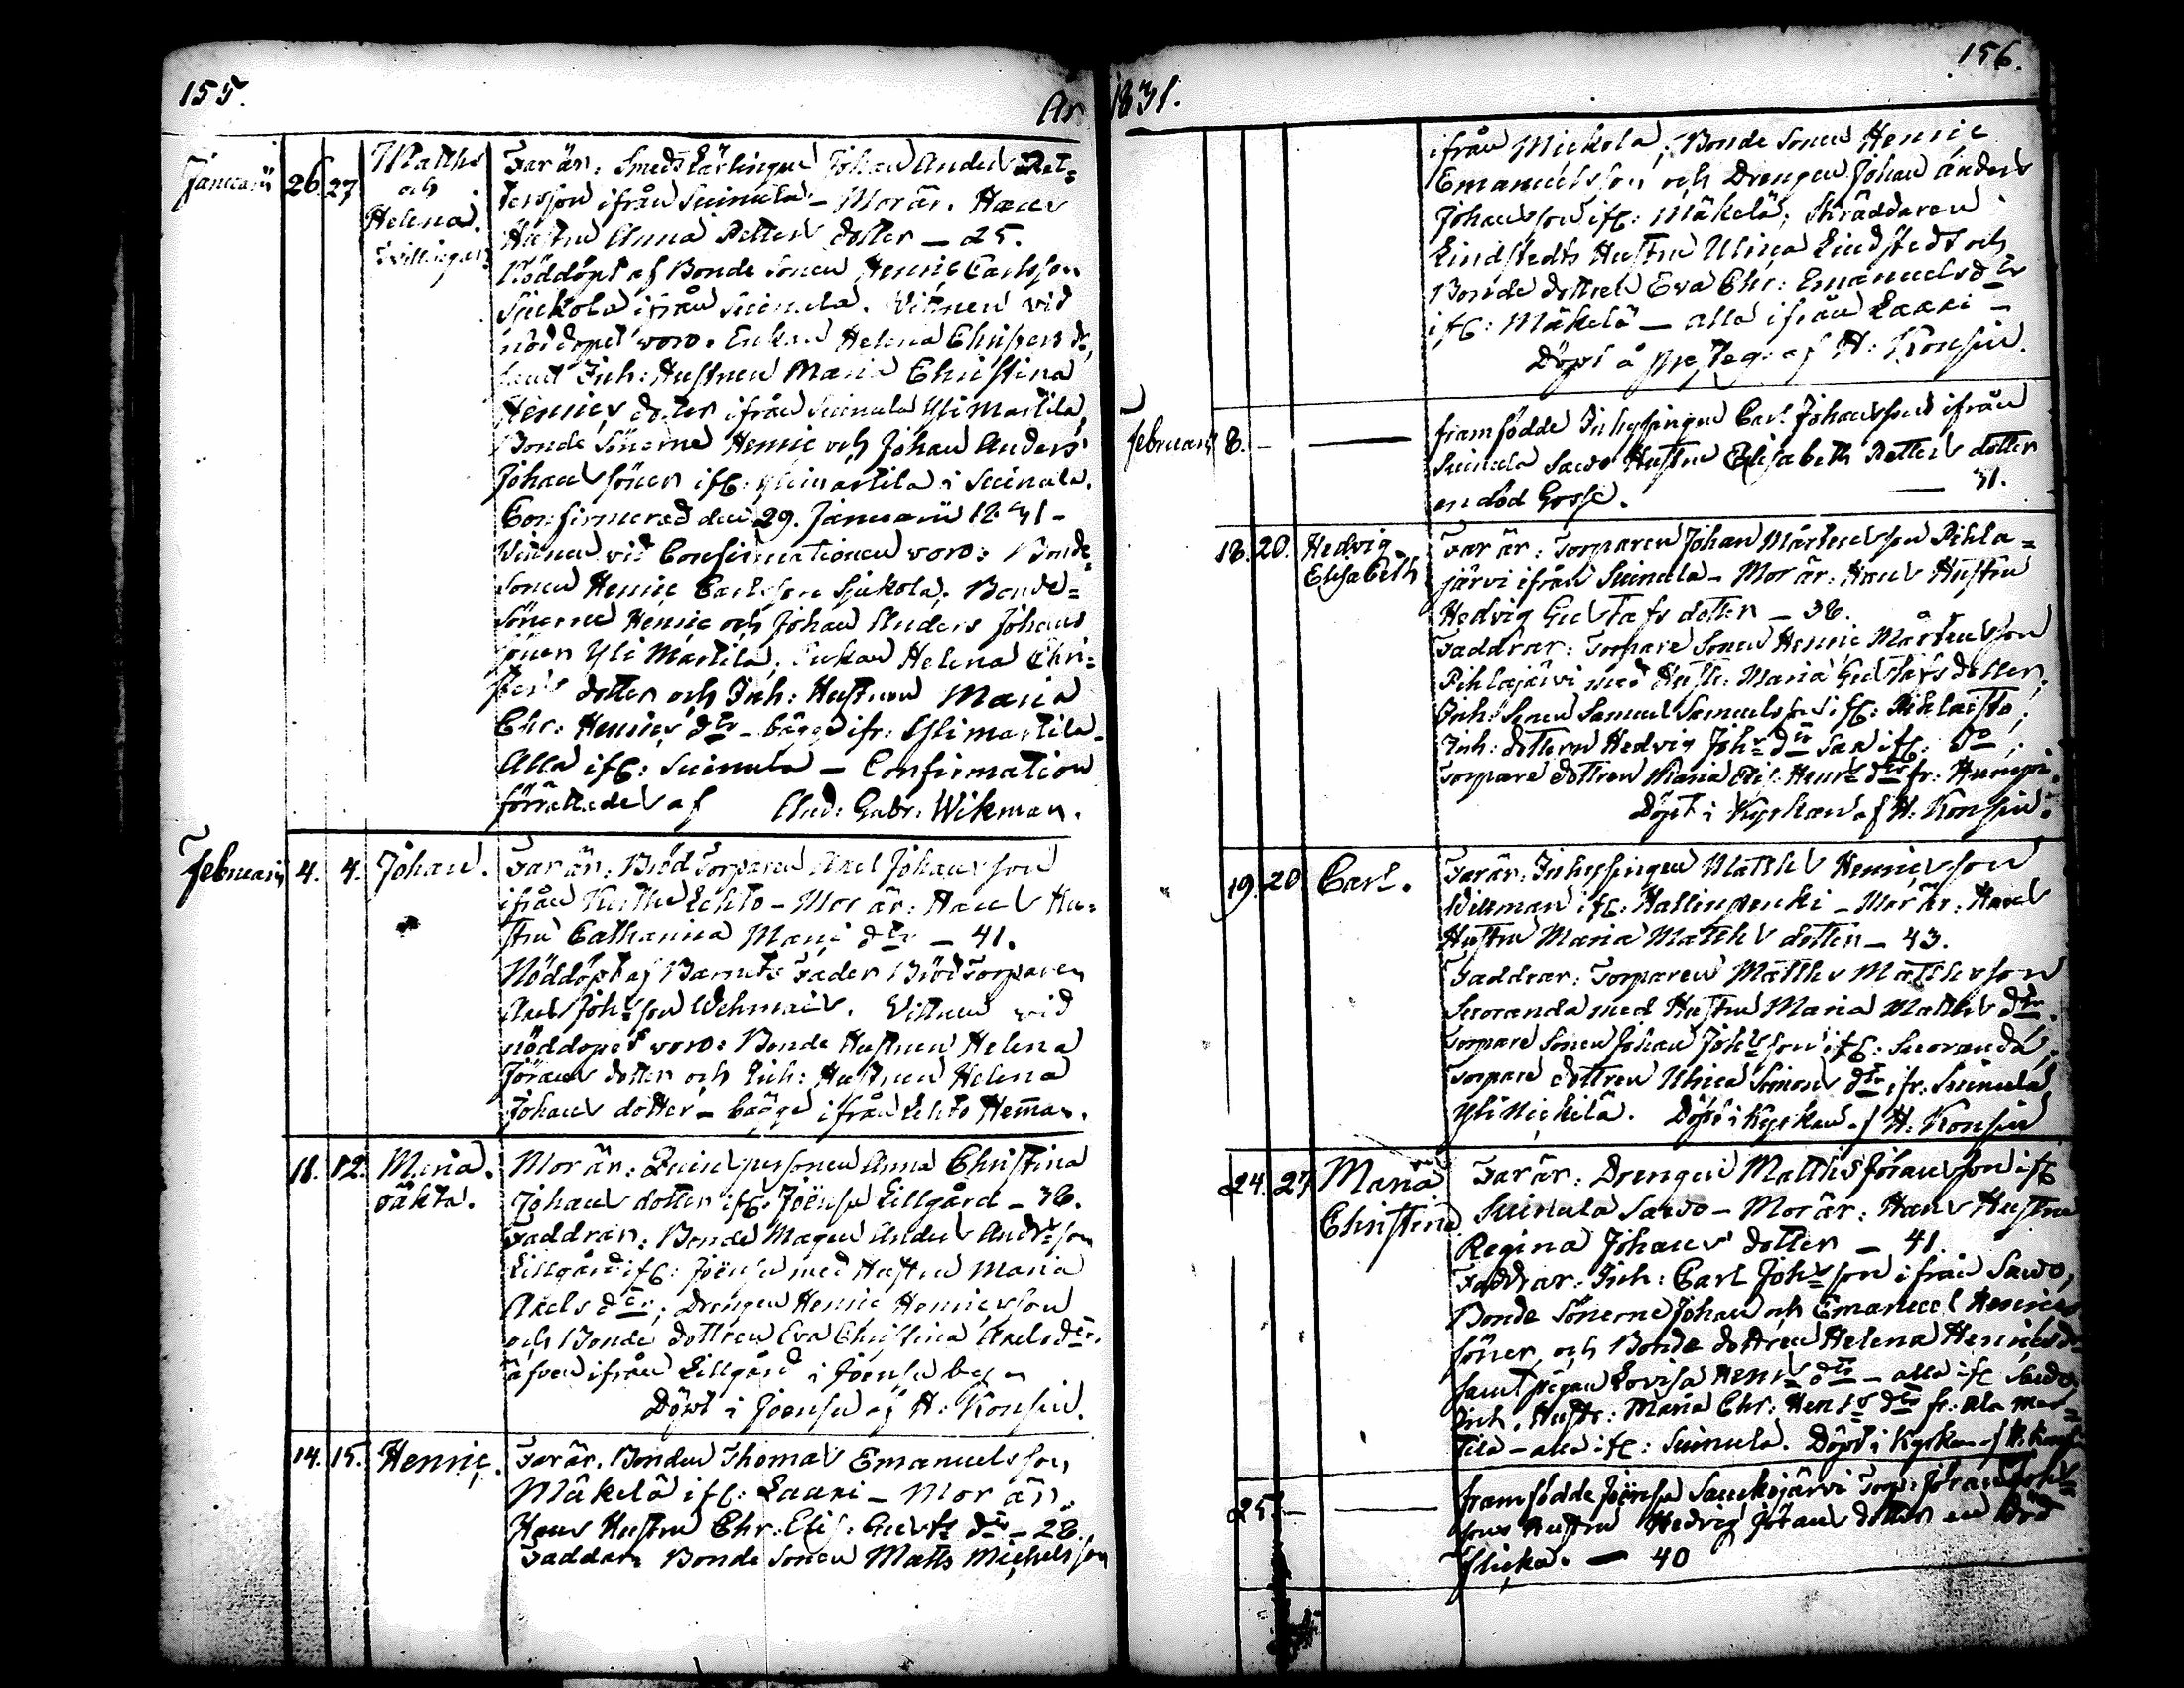 155.
År
Januarii 26 27 Matths
och
Helena.
Tvillingar.
Far är: Smeds Lärlingen Johan Anders Pet=
tersson ifrån Suinula – Mor är. Hans
Hustru Anna Petters dotter – 25.
Nöddöpt af Bonde Sonen Henric Carlsson
Sjukola ifrån Suinula. Vittnen vid
nöddopet voro. Enkan Helena Christers dr,
samt Inh: Hustrun Maria Christina
Henrics dotter ifrån Suinula Yli Martila,
Bonde Sönerne Henric och Johan Anders
Johans söner ifr: Ylimartila i Suinula.
Confirmerad den 29. Januarii 1831 –
Vittnen vid Confirmationen voro: Bonde=
sonen Henric Carlsson Sjukola, Bonde=
sönerne Henric och Johan Anders Johans
söner Yli Martila, Enkan Helena Chri=
sters dotter och Inh: Hustrun Maria
Chr: Henrics dtr – bägge ifr: Ylimartila –
Alla ifr: Suinula – Confirmation
förrättades af And: Gabr: Wikman.
Februarii 4. 4. Johan. Far är: Bröd Torparen Axel Johansson
ifrån Lehto – Mor är: Hans Hu=
stru Catharina Mats dtr – 41.
Nöddöpt af Barnets Fader Bröd Torparen
Axel Johsson Wehmais. Vittnen vid
nöddopet voro: Bonde Hustrun Helena
Jörans dotter och Inh: Hustrun Helena
Johans dotter – bägge ifrån Lehto Heman.
11. 12. Maria.
oäkta.
Mor är: Quinspersonen Anna Christina
Johans dotter ifr: Joënsu Lillgård – 38.
Faddrar: Bonde Magen Anders Andrsson
Lillgård ifr: Joënsu med Hustru Maria
Axels dtr; Drengen Henric Henricsson
och Bonde dottren Eva Christina Axels dtr.
äfven ifrån Lillgård i Joënsu by –
Döpt i Joensu af H: Konsin.
14. 15. Henric. Far är. Bonden Thomas Emanuelsson
Mäkelä ifr: Laari – Mor är.
Hans Hustru Chr: Elis: Gustfs dtr – 28.
Faddar: Bonde Sonen Matts Michelsson
156.
1831.
ifrån Mickola; Bonde Sonen Henric
Emanuelsson och Drengen Johan Anders
Johansson ifr: Mäkelä; Skräddaren
Lindstedts Hustru Ulrica Lindstedt och
Bonde dottren Eva Chr: Emanuelsdtr
ifr: Mäkelä – alla ifrån Laari –
Döpt å af H: Konsin.
Februarii 8. – — framfödde Inhysingen Carl Johanssons ifrån
Suinula Sawo Hustru Elisabeth Petters dotter
en död Gosse. — 31.
18. 20. Hedvig
Elisabeth
Far är: Torparen Johan Mårtensson Pihla=
järvi ifrån Suinula – Mor är: Hans Hustru
Hedvig Gustafs dotter – 38.
Faddrar: Torpare Sonen Henric Mårtensson
Pihlajärvi med Hustr: Maria Gustafs dotter,
Inh: Sonen Samuel Samuelsson ifr: Pihlaisto;
Inh: dottren Hedvig Johs dtr ifr: do;
Torpare dottren Maria Elis: Henrs dtr fr: Humpi.
Döpt i Kyrkan af H: Konsin.
19. 20 Carl. Far är: Inhysingen Matths Henricsson
Willman ifr: Hallinpenki – Mor är: Hans
Hustru Maria Matths dotter – 43.
Faddrar: Torparen Matths Matthsson
Suoranda med Hustru Maria Matths dtr.
Torpare Sonen Johan Johsson ifr: Suoranda,
Torpare dottren Ulrica Simons dtr ifr: Suinula
Yli Nickilä. Döpt i Kyrkan af H: Konsin
24. 27 Maria
Christina
Far är: Drengen Matths Johansson ifr
Suinula Sawo – Mor är: Hans Hustru
Regina Johans dotter – 41.
Faddrar: Inh: Carl Johsson ifrån Sawo,
Bonde Sönerne Johan och Emanuel Henrics
söner, och Bonde dottren Helena Henricsdr
samt pigan Lovisa Henrs dtr – alla ifr Sawo,
Inh. Hustr: Maria Chr: Henrs dtr fr: Ala Mar=
tila – alla ifr: Suinula. Döpt i Kyrkan af H. Konsin
25. – — framfödde Joënsu Saukojärvi Torp: Jöran Johs=
sons Hustru Hedvig Jörans dotter en död
flicka. — 40